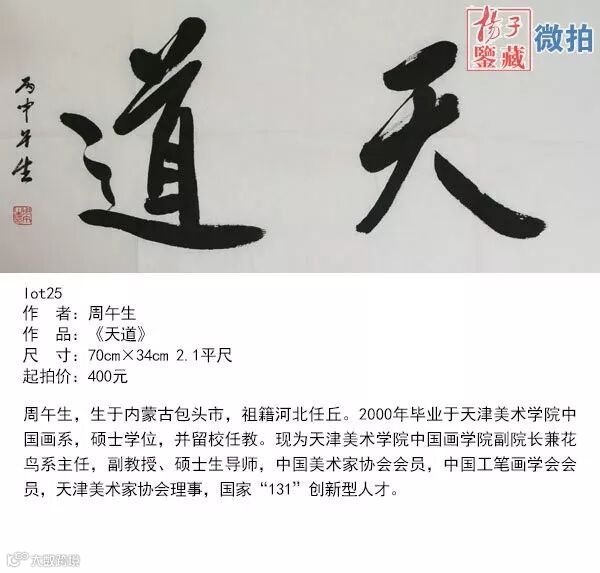 天道
丙申午生
杨子
鉴藏
微拍
lot25
作 者：周午生
作 品：《天道》
尺 寸：70cm×34cm 2.1平尺
起拍价：400元
周午生，生于内蒙古包头市，祖籍河北任丘。2000年毕业于天津美术学院中
国画系，硕士学位，并留校任教。现为天津美术学院中国画学院副院长兼花
鸟系主任，副教授、硕士生导师，中国美术家协会会员，中国工笔画学会会
员，天津美术家协会理事，国家“131”创新型人才。
大数跨境